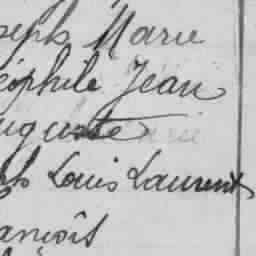 seph Marie
éophile Jean
uguste
Louis Laurent
ançois